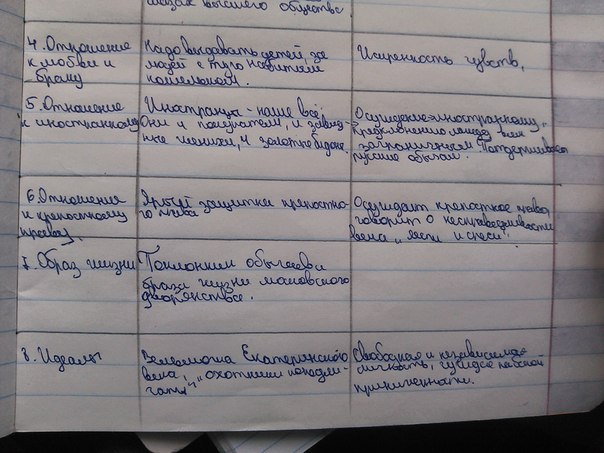 глазах высшего общества
4. Отношение
к любви и
браку
Надо выдавать детей за
людей с туго набитым
кошельком.
Искренность чувств.
5. Отношение
к иностранному
Иностранцы - наше всё!
Они и покупатели, и
женихи, и
Осуждение
преклонению перед всем
заграничным. Поддерживает
русские обычаи.
6. Отношения
к крепостному
праву
Ярый защитник крепостно-
го права
Осуждает крепостное право
говорит о несправедливости
века "лести и спеси"
7. Образ жизни
Поклонник обычаев и
образа жизни московского
дворянства.
8. Идеалы
Вельможа Екатерининского
века, "охотники поподли-
чать"
Свободная и независимая
личность, чуждая рабской
приниженности.